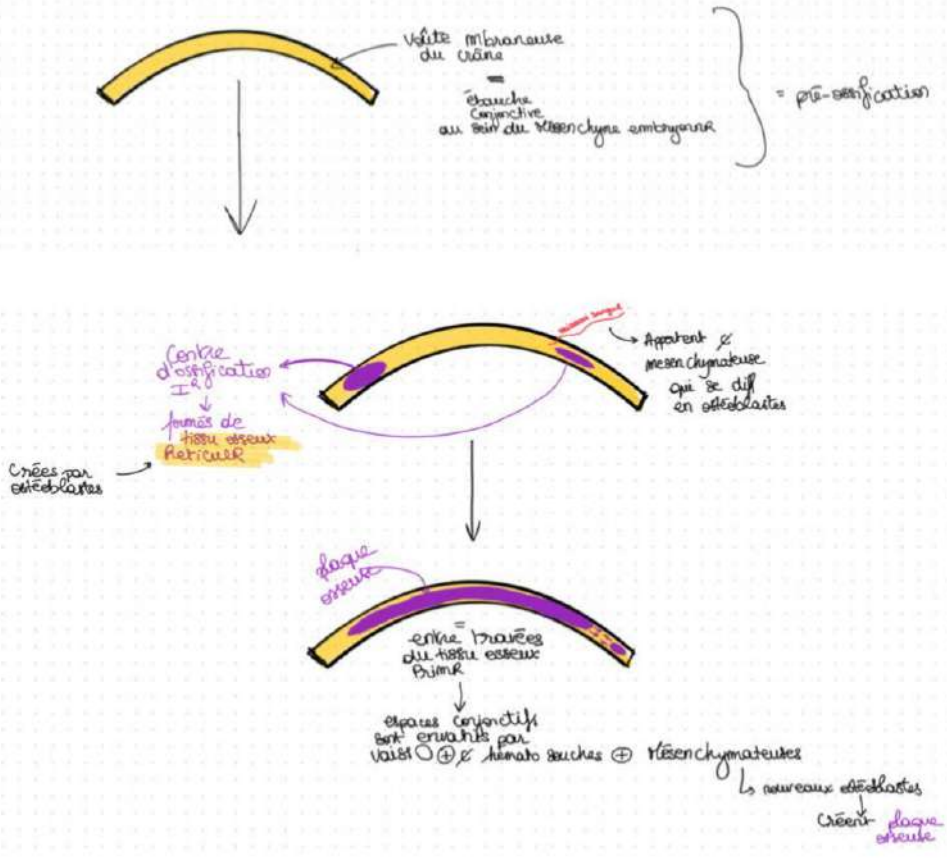 voûte mbraneuse
du crâne
=
ébauche
conjonctive
au sein du Mésenchyme embryonnR
= pré-ossification
Centre
d'ossification
I R
↓
formés de
tissu osseux
RéticulR
Crées par
ostéoblastes
→ Apportent ¢
mesenchymateuse
qui se dif
en ostéoblastes
plaque
osseuse
=
entre travées
du tissu osseux
PrimR
↓
espaces conjonctifs
sont envahis par
vaiss O ⊕ ¢ hémato souches ⊕ Mésenchymateuses
↳ nouveaux ostéoblastes
↓
Créent plaque
osseuse